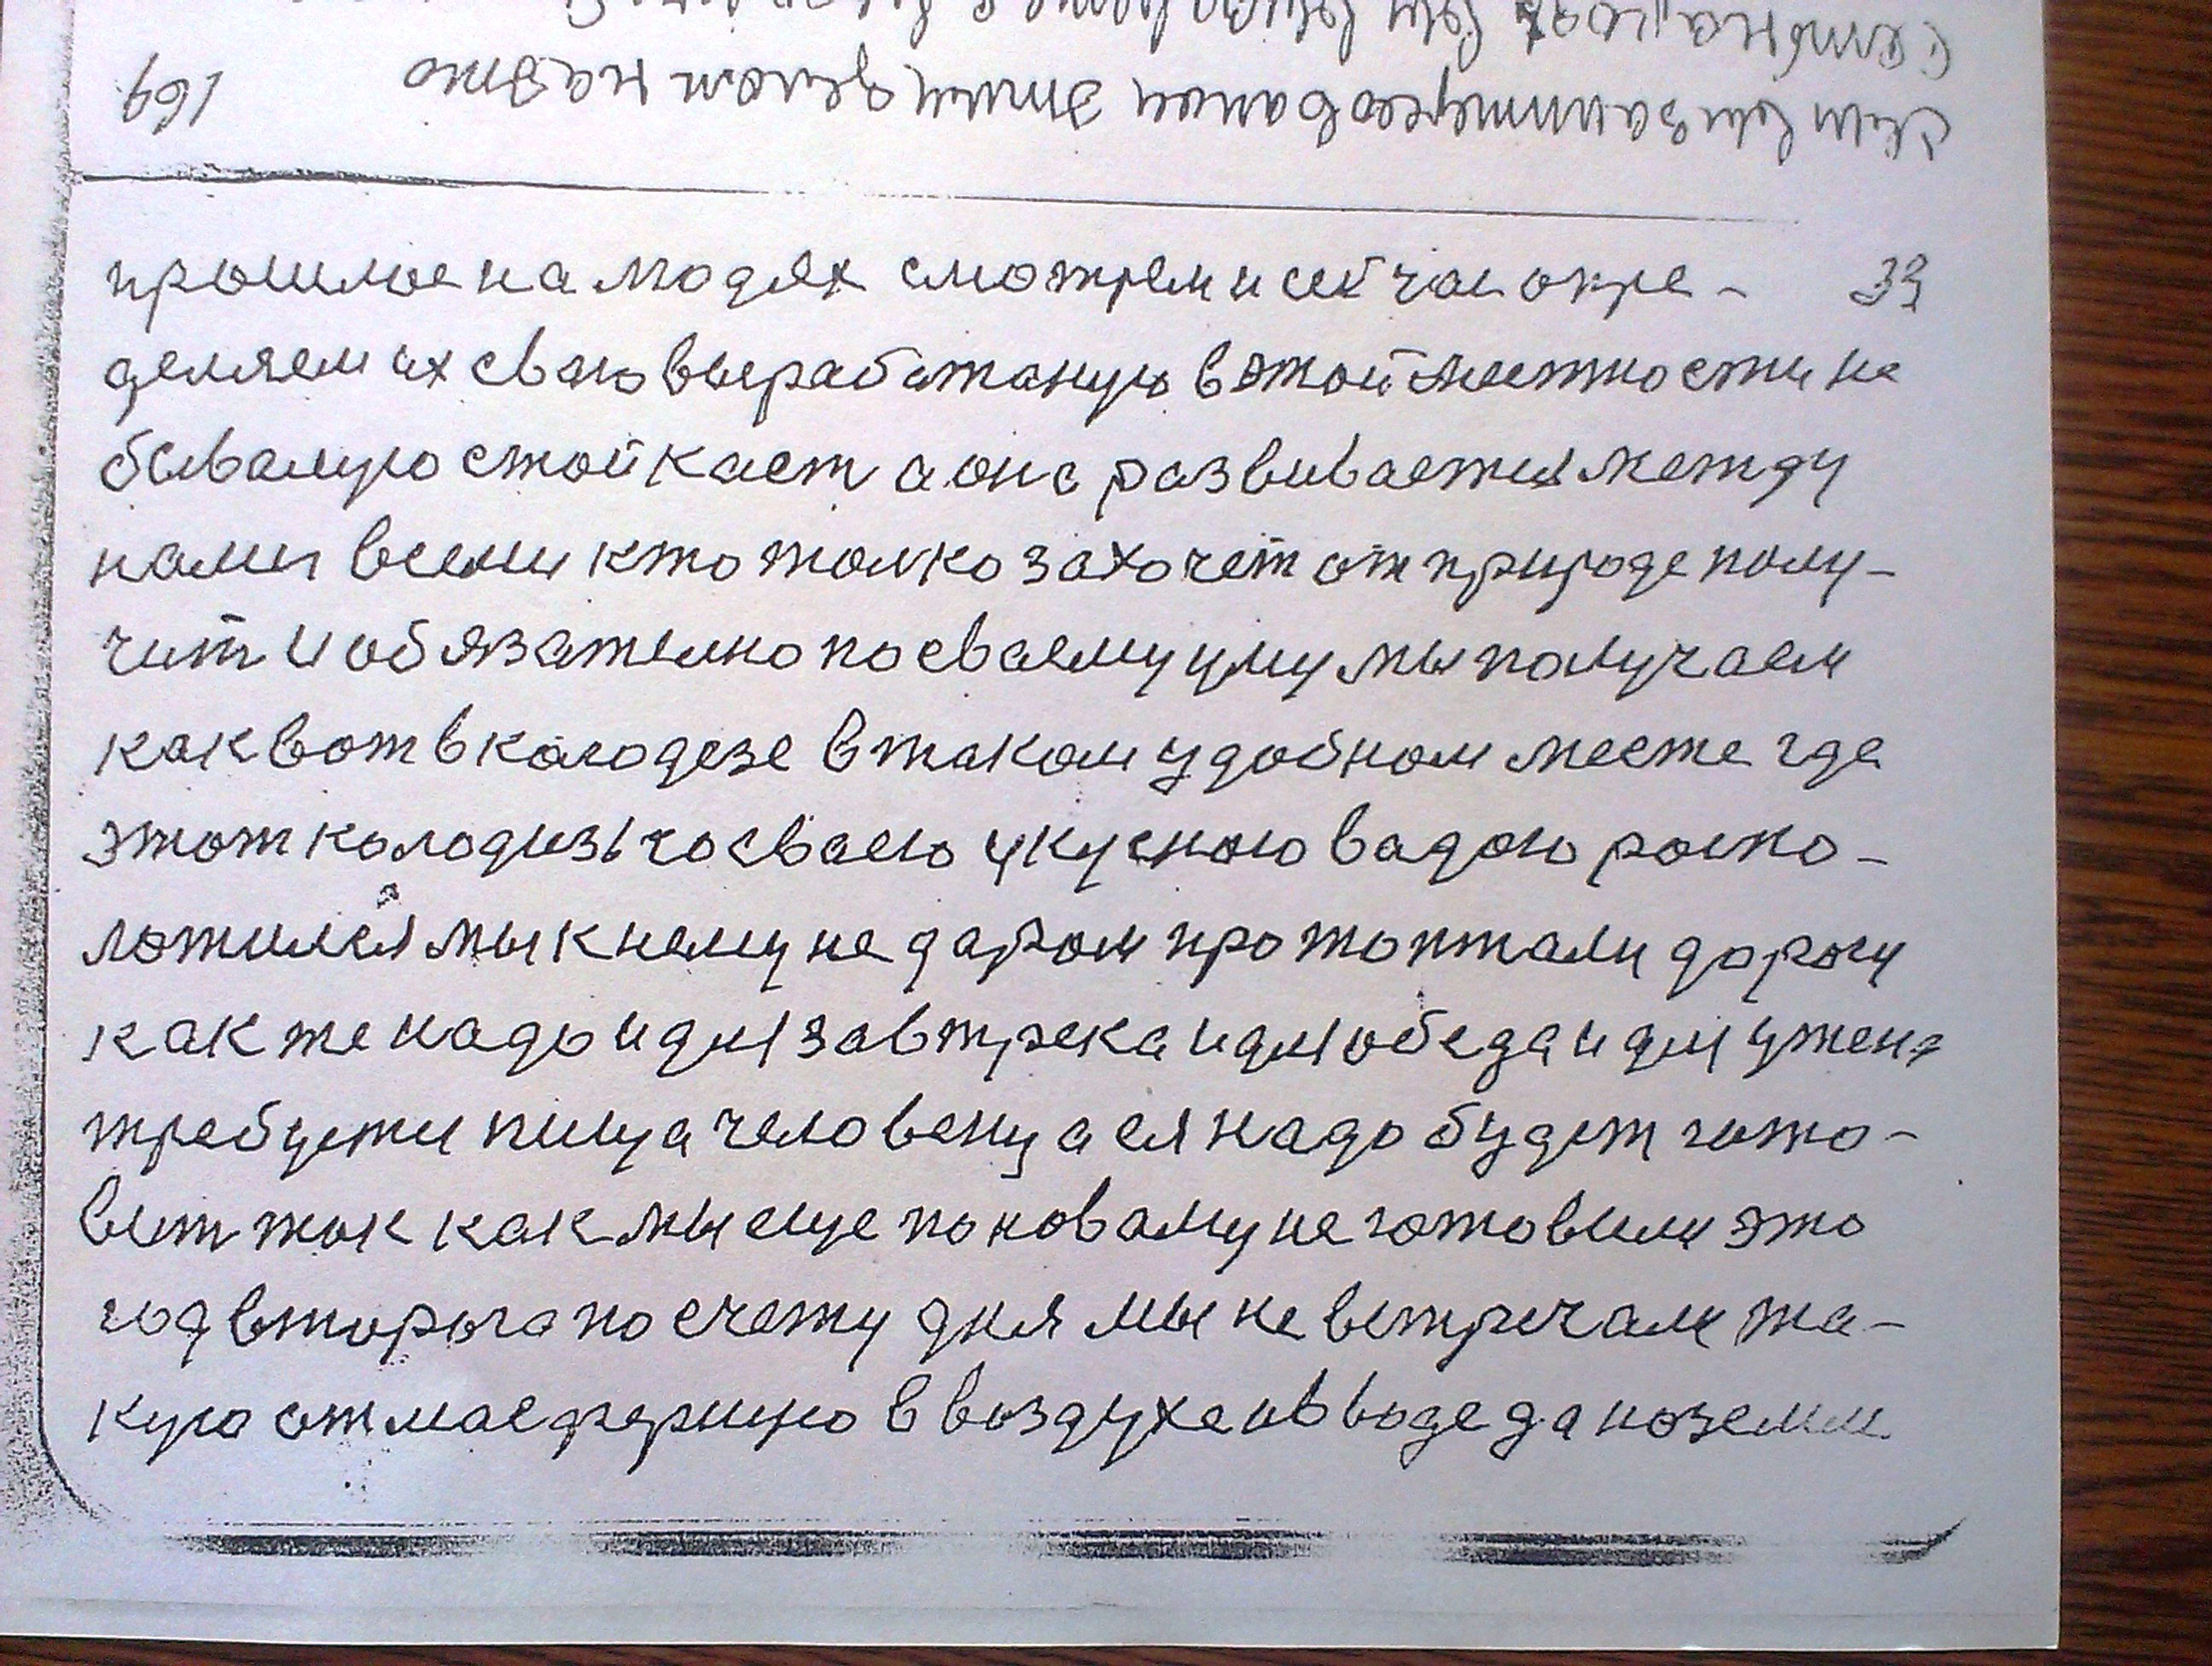 169
прошлое на людях смотрем и сейчас опре- 33
деляем их сваю выработаную в этой мистности не
бывалую стойкаст а она развивается между
нами всеми кто толко захочет от природе полу-
чит и обязателно по сваему уму мы получаем
как вот в калодезе в таком удобном месте где
этот колодизь со сваею укусною вадою роспо-
ложился мы к нему не даром протоптали дорогу
как же надо и для завтрека и для обеда и для ужена
требуети пища человеку а ея надо будет гото-
вит так как мы еще по новаму не готовили это
год втораго по счету дня мы не встречали та-
кую отмасферную в воздухе и в воде да по земли